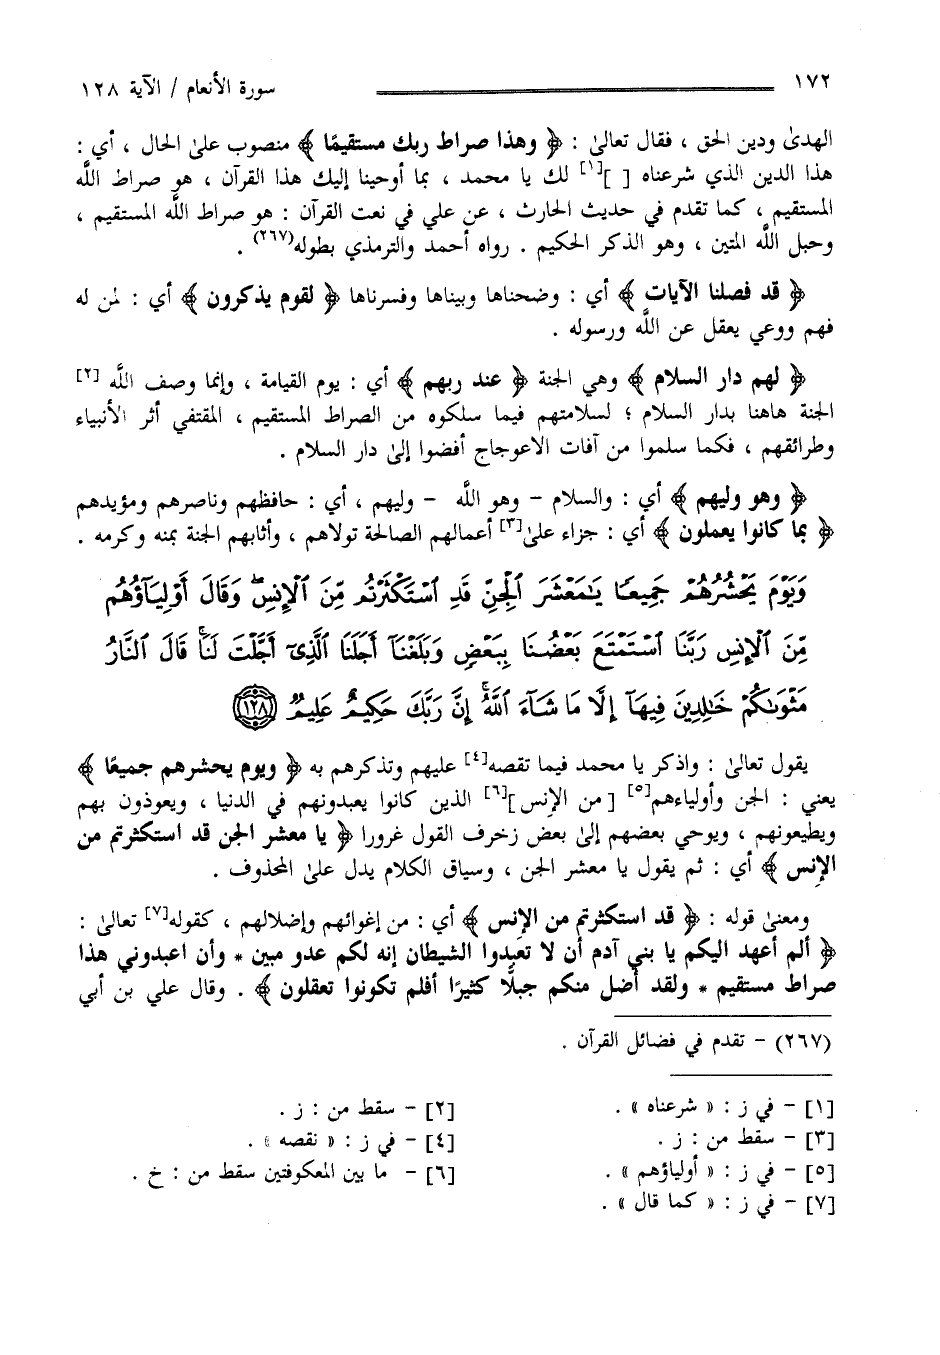 ١٧٢ سورة الأنعام / الآية ١٢٨
الهدىٰ ودين الحق ، فقال تعالىٰ : ﴿ وهذا صراط ربك مستقيمًا ﴾ منصوب علىٰ الحال ، أي :
هذا الدين الذي شرعناه [ ][١] لك يا محمد ، بما أوحينا إليك هذا القرآن ، هو صراط اللَّه
المستقيم ، كما تقدم في حديث الحارث ، عن علي في نعت القرآن : هو صراط اللَّه المستقيم ،
وحبل اللَّه المتين ، وهو الذكر الحكيم . رواه أحمد والترمذي بطوله(٢٦٧) .
﴿ قد فصلنا الآيات ﴾ أي : وضحناها وبيناها وفسرناها ﴿ لقوم يذكرون ﴾ أي : لمن له
فهم ووعي يعقل عن اللَّه ورسوله .
﴿ لهم دار السلام ﴾ وهي الجنة ﴿ عند ربهم ﴾ أي : يوم القيامة ، وإنما وصف اللَّه [٢]
الجنة هاهنا بدار السلام ؛ لسلامتهم فيما سلكوه من الصراط المستقيم ، المقتفي أثر الأنبياء
وطرائقهم ، فكما سلموا من آفات الاعوجاج أفضوا إلىٰ دار السلام .
﴿ وهو وليهم ﴾ أي : والسلام - وهو اللَّه - وليهم ، أي : حافظهم وناصرهم ومؤيدهم
﴿ بما كانوا يعملون ﴾ أي : جزاء علىٰ[٣] أعمالهم الصالحة تولاهم ، وأثابهم الجنة بمنه وكرمه .
وَيَوْمَ يَحْشُرُهُمْ جَمِيعًا يَٰمَعْشَرَ ٱلْجِنِّ قَدِ ٱسْتَكْثَرْتُم مِّنَ ٱلْإِنسِۖ وَقَالَ أَوْلِيَآؤُهُم
مِّنَ ٱلْإِنسِ رَبَّنَا ٱسْتَمْتَعَ بَعْضُنَا بِبَعْضٍ وَبَلَغْنَآ أَجَلَنَا ٱلَّذِىٓ أَجَّلْتَ لَنَاۚ قَالَ ٱلنَّارُ
مَثْوَىٰكُمْ خَٰلِدِينَ فِيهَآ إِلَّا مَا شَآءَ ٱللَّهُۚ إِنَّ رَبَّكَ حَكِيمٌ عَلِيمٌ ١٢٨
يقول تعالىٰ : واذكر يا محمد فيما تقصه[٤] عليهم وتذكرهم به ﴿ ويوم يحشرهم جميعًا ﴾
يعني : الجن وأولياءهم[٥] [ من الإنس ][٦] الذين كانوا يعبدونهم في الدنيا ، ويعوذون بهم
ويطيعونهم ، ويوحي بعضهم إلىٰ بعض زخرف القول غرورا ﴿ يا معشر الجن قد استكثرتم من
الإنس ﴾ أي : ثم يقول يا معشر الجن ، وسياق الكلام يدل علىٰ المحذوف .
ومعنىٰ قوله : ﴿ قد استكثرتم من الإنس ﴾ أي : من إغوائهم وإضلالهم ، كقوله[٧] تعالىٰ :
﴿ ألم أعهد اليكم يا بني آدم أن لا تعبدوا الشيطان إنه لكم عدو مبين * وأن اعبدوني هذا
صراط مستقيم * ولقد أضل منكم جبلًّا كثيرًا أفلم تكونوا تعقلون ﴾ . وقال علي بن أبي
(٢٦٧) - تقدم في فضائل القرآن .
[١] - في ز : « شرعناه » . [٢] - سقط من : ز .
[٣] - سقط من : ز . [٤] - في ز : « نقصه » .
[٥] - في ز : « أولياؤهم » . [٦] - ما بين المعكوفتين سقط من : خ .
[٧] - في ز : « كما قال » .